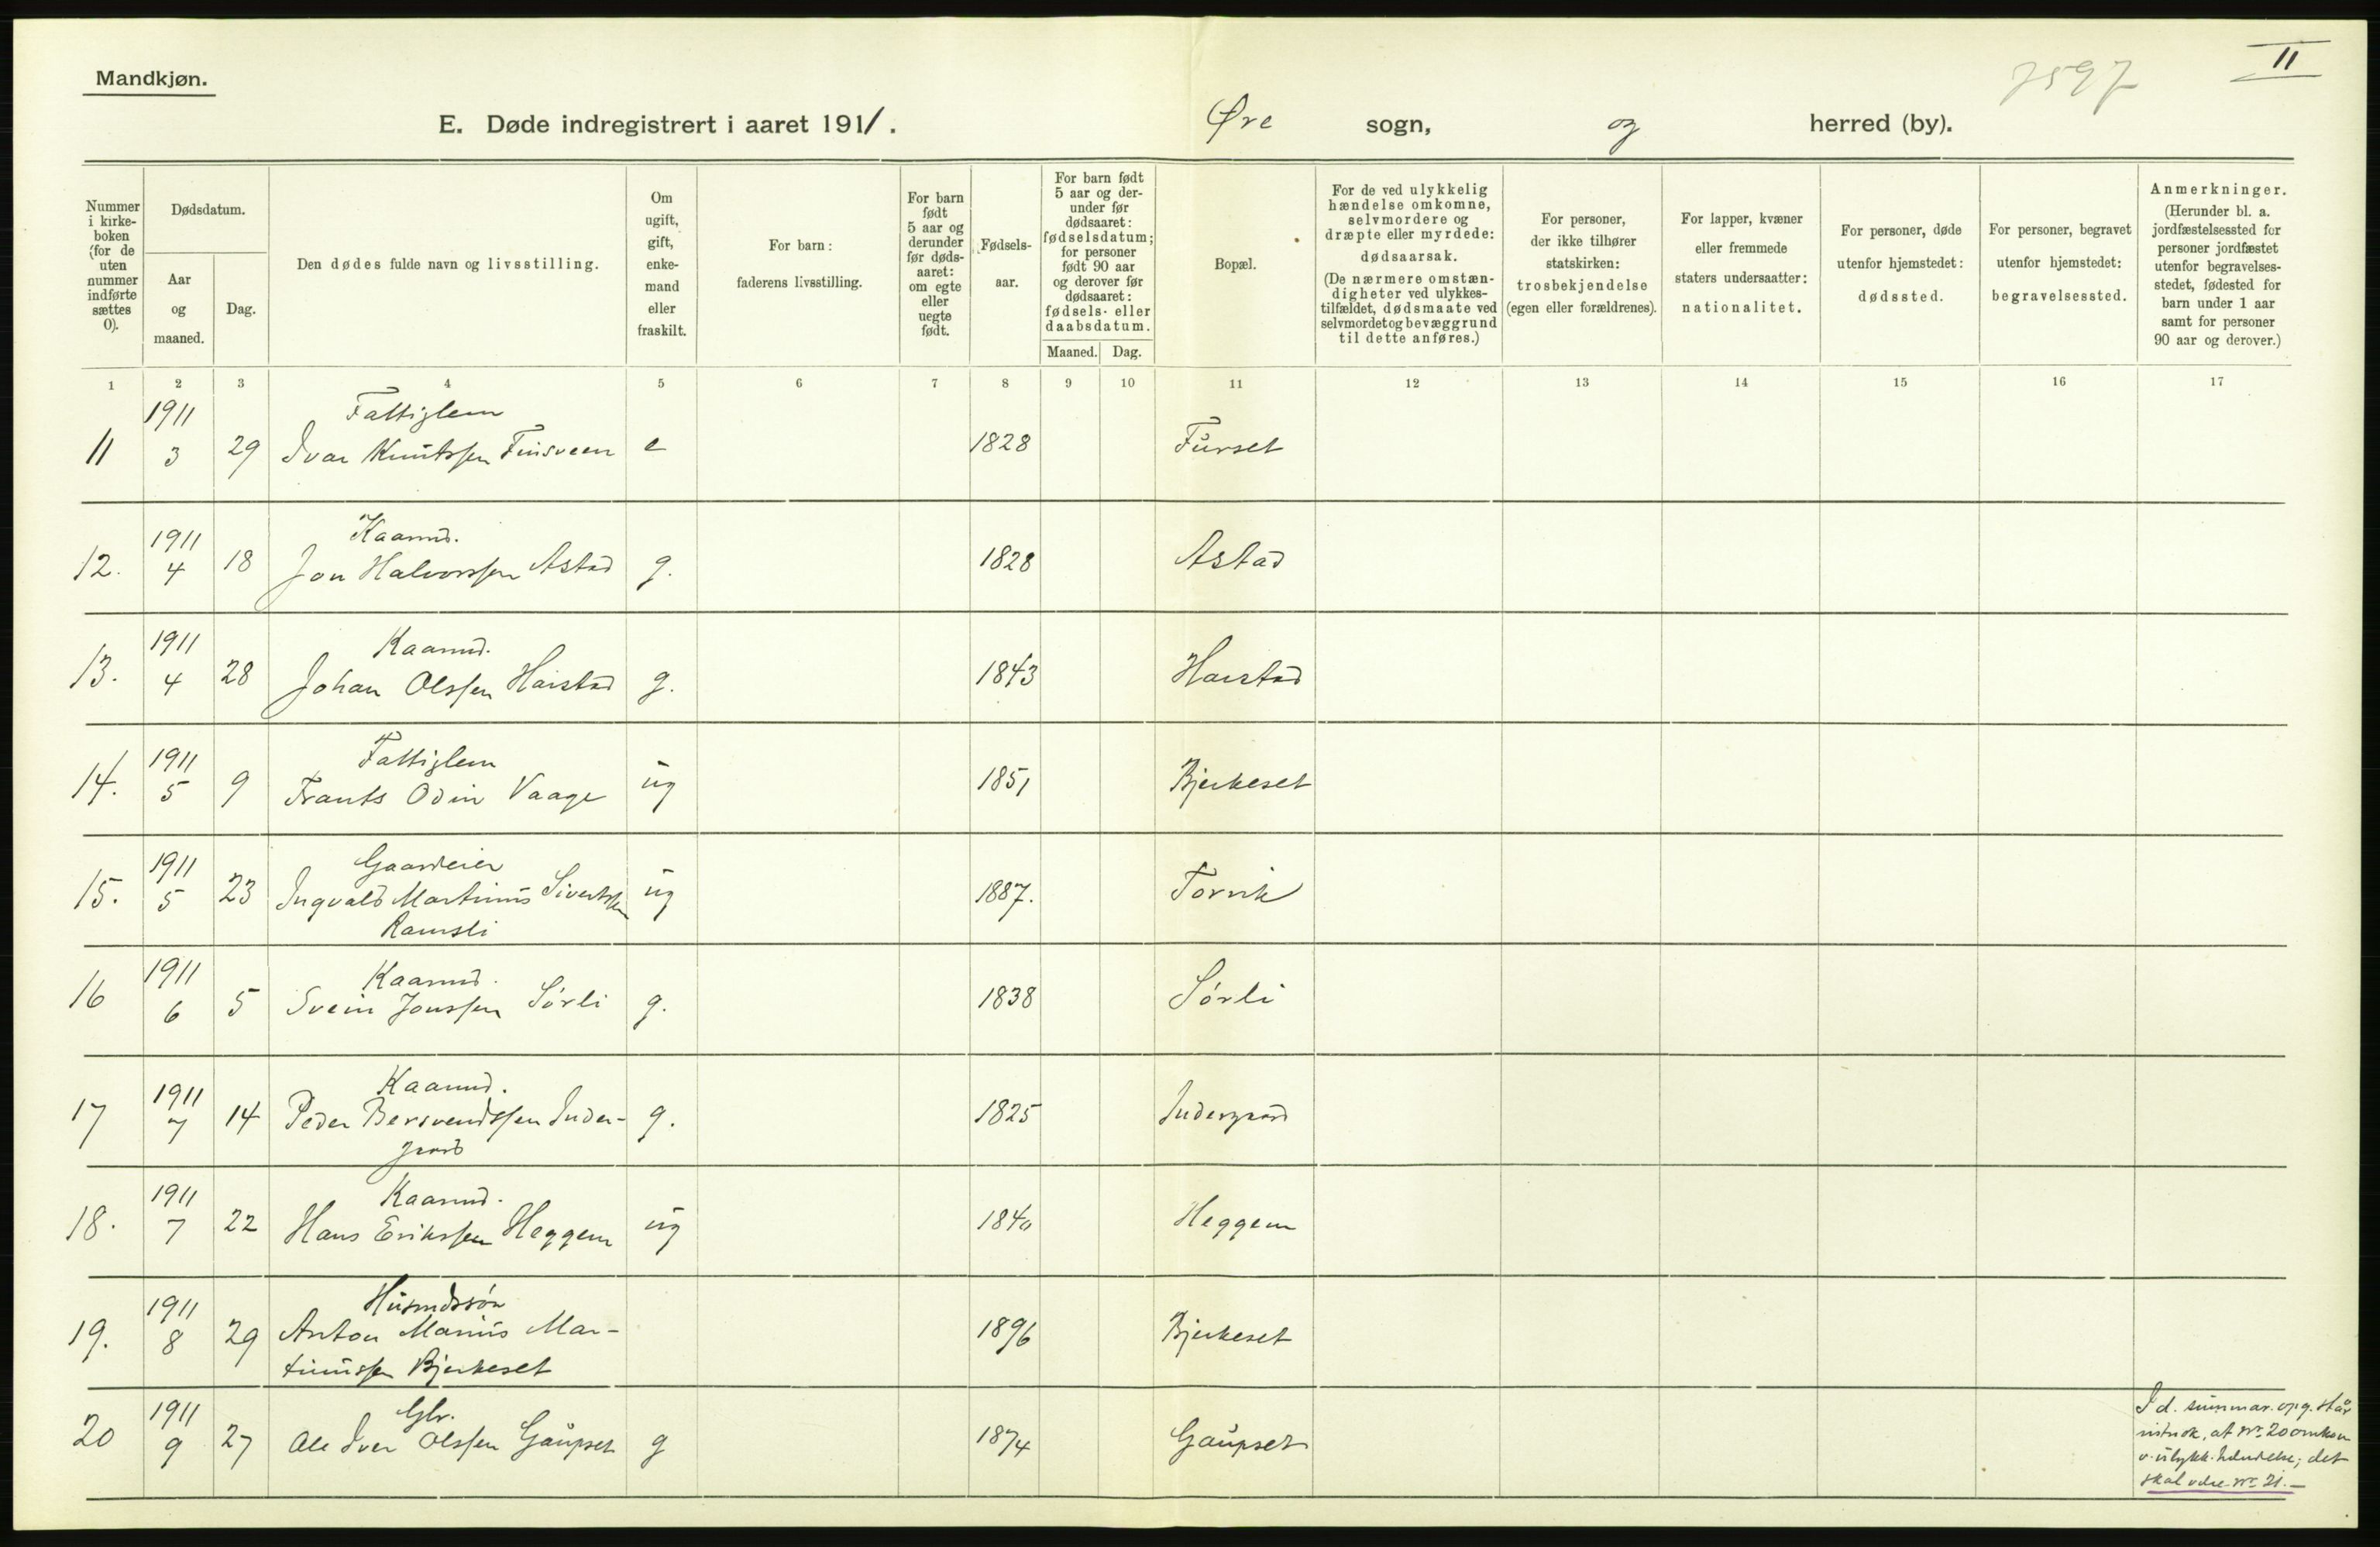 Mandkjøn.
II
7597
E. Døde indregistrert i aaret 1911.
Øre sogn, og herred (by).
Nummer i kirke-boken (for de uten nummer indførte sættes 0).
Dødsdatum.
Aar og maaned.
Dag.
Den dødes fulde navn og livsstilling.
Om ugift, gift, enke-mand eller fraskilt.
For barn: faderens livsstilling.
For barn født 5 aar og derunder før døds-aaret: om egte eller uegte født.
Fødsels-aar.
For barn født 5 aar og der-under før dødsaaret: fødselsdatum; for personer født 90 aar og derover før dødsaaret: fødsels- eller daabsdatum.
Maaned. Dag.
Bopæl.
For de ved ulykkelig hændelse omkomne, selvmordere og dræpte eller myrdede: dødsaarsak. (De nærmere omstæn-digheter ved ulykkes-tilfældet, dødsmaate ved selvmordet og bevæggrund til dette anføres.)
For personer, der ikke tilhører statskirken: trosbekjendelse (egen eller forældrenes).
For lapper, kvæner eller fremmede staters undersaatter: nationalitet.
For personer, døde utenfor hjemstedet: dødssted.
For personer, begravet utenfor hjemstedet: begravelsessted.
Anmerkninger. (Herunder bl. a. jordfæstelsessted for personer jordfæstet utenfor begravelses-stedet, fødested for barn under 1 aar samt for personer 90 aar og derover.)
1 2 3 4 5 6 7 8 9 10 11 12 13 14 15 16 17
1911 Fattiglem
11 3 29 Ivar Knutssen Finsveen e 1828 Furset
1911 Kaarmd.
12. 4 18 Jon Halvorssen Astad g. 1828 Astad
1911 Kaarmd.
13. 4 28 Johan Olssen Harstad g. 1843 Harstad
1911 Fattiglem
14. 5 9 Frants Odin Vaage ug 1851 Bjerkeset
1911 Gaardeier
15. 5 23 Ingvald Martinus Sivertssen ug 1887. Torvik
Ramsli
1911 Kaarmd.
16 6 5 Svein Jonssen Sørli g. 1838 Sørli
1911 Kaarmd.
17 7 14 Peder Bersvendssen Inder- g. 1825 Indergaard
gaard
1911 Kaarmd.
18. 7 22 Hans Erikssen Heggem ug 1840 Heggem
1911 Husmdssøn
19. 8 29 Anton Marius Mar- 1896 Bjerkeset
tinussen Bjerkeset
1911 Gbr.
20 9 27 Ole Iver Olssen Gaupset g 1874 Gaupset
I d. summar. opg. står
at Nr. 20 omkom
v. ulykk. hændelse; det
skal være Nr. 21. —